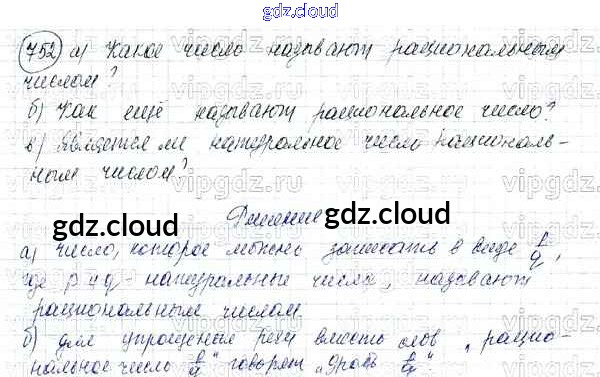 gdz.cloud
752 а) Какое число называют рациональным
числом?
б) Как ещё называют рациональное число?
в) Является ли натуральное число рациональ-
ным числом?
Решение
gdz.cloud gdz.cloud
а) число, которое можно записать в виде p/q,
где p и q - натуральные числа, называют
рациональным числом.
б) для упрощения речи вместо слов „рацио-
нальное число p/q" говорят „дробь p/q"
gdz.cloud